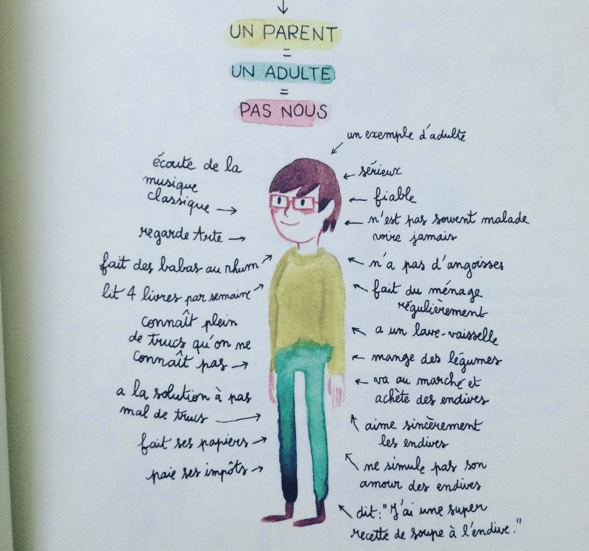 UN PARENT
=
UN ADULTE
=
PAS NOUS
un exemple d'adulte
écoute de la
musique
classique
regarde Arte
fait des babas au rhum
lit 4 livres par semaine
connaît plein
de trucs qu'on ne
connaît pas
a la solution à pas
mal de trucs
fait ses papiers
paie ses impôts
sérieux
fiable
n'est pas souvent malade
voire jamais
n'a pas d'angoisses
fait du ménage
régulièrement
a un lave-vaisselle
mange des légumes
va au marché et
achète des endives
aime sincèrement
les endives
ne simule pas son
amour des endives
dit : "J'ai une super
recette de soupe à l'endive."